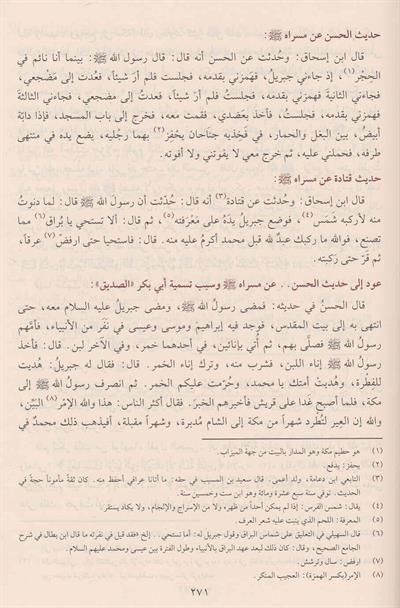 حديث الحسن عن مسراه ﷺ:
قال ابن إسحاق: وحُدثت عن الحسن أنه قال: قال رسول الله ﷺ: بينما أنا نائم في
الحِجْر(١)، إذ جاءني جبريلُ، فهمَزني بقدمه، فجلست فلم أرَ شيئاً، فعُدت إلى مَضْجَعي،
فجاءني الثانيةَ فهمَزني بقدمه، فجلستُ فلم أرَ شيئاً، فعدتُ إلى مضجعي، فجاءني الثالثةَ
فهمَزني بقدمه، فجلستُ، فأخذَ بعَضُدي، فقمت معه، فخرج إلى باب المسجد، فإذا دابّة
أبيضُ، بينَ البغل والحمار، في فَخِذيه جناحان يحْفِز(٢) بهما رجْليه، يضع يده في منتهى
طرفه، فحملني عليه، ثم خرج معي لا يفوتني ولا أفوته.
حديث قتادة عن مسراه ﷺ:
قال ابن إسحاق: وحُدثت عن قتادة(٣) أنه قال: حُدّثت أن رسول الله ﷺ قال: لما دنوتُ
منه لأركبه شَمَسَ(٤)، فوضع جبريلُ يدَهُ على مَعْرَفته(٥)، ثم قال: ألا تستحي يا بُراق(٦) مما
تصنع، فوالله ما ركبك عبدٌ لله قبل محمد أكرمُ عليه منه. قال: فاستحيا حتى ارفضّ(٧) عرقاً،
ثم قرّ حتى ركبته.
عود إلى حديث الحسن.. عن مسراه ﷺ وسبب تسمية أبي بكر «الصديق»:
قال الحسنُ في حديثه: فمضى رسولُ الله ﷺ، ومضى جبريلُ عليه السلام معه، حتى
انتهى به إلى بيت المقدس، فوجد فيه إبراهيمَ وموسى وعيسى في نَفَر من الأنبياء، فأمّهم
رسولُ الله ﷺ فصلّى بهم، ثم أُتي بإناءَين، في أحدهما خمر، وفي الآخر لبن. قال: فأخذ
رسولُ الله ﷺ إناءَ اللبن، فشرب منه، وترك إناءَ الخمر. قال: فقال له جبريلُ: هُديت
للفِطرة، وهُديتْ أمتك يا محمد، وحُرّمت عليكم الخمر. ثم انصرف رسولُ الله ﷺ إلى
مكة، فلما أصبح غدا على قريش فأخبرهم الخبرَ. فقال أكثر الناس: هذا والله الإمْر(٨) البَيّن،
والله إن العير لتُطرد شهراً من مكة إلى الشام مُدبرة، وشهراً مقبلة، أفيذهب ذلك محمدٌ في
(١) هو حطيم مكة وهو المدار بالبيت من جهة الميزاب.
(٢) يحفز: يدفع.
(٣) التابعي ابن دعامة، ولد أعمى. قال سعيد بن المسيب في حقه: ما أتانا عراقي أحفظ منه. كان ثقةً مأموناً حجةً في
الحديث. توفي سنة سبع عشرة ومائة وهو ابن ست وخمسين سنة.
(٤) يقال: شمس الفرس: إذا لم يمكن أحداً من ظهره، ولا من الإسراج والإلجام، ولا يكاد يستقر.
(٥) المعرفة: اللحم الذي ينبت عليه شعر العرف.
(٦) قال السهيلي في التعليق على شماس البراق وقول جبريل له: أما تستحي.. إلخ «فقد قيل في نفرته ما قال ابن بطال في شرح
الجامع الصحيح، وقال: كان ذلك لبعد عهد البراق بالأنبياء، وطول الفترة بين عيسى ومحمد عليهم السلام.
(٧) ارفض: سال وترشش.
(٨) الإمر(بكسر الهمزة): العجيب المنكر.
٢٧١